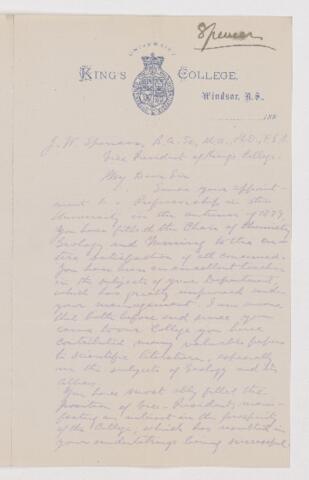 Spencer
UNIVERSITY
KING'S COLLEGE.
Windsor, N.S.
188
J. W. Spencer, B.A.Sc, M.A., Ph.D., F.G.S.
Vice President of King's College.
My Dear Sir
Since your appoint-
ment to a Professorship in the
University in the autumn of 1879
You have filled the Chair of Chemistry
Geology and Mining to the en-
tire satisfaction of all concerned.
You have been an excellent teacher
in the subjects of your Department,
which has greatly improved under
your management. I am aware
that both before and since you
came to our College you have
contributed many valuable papers
to Scientific literature, especially
on the subjects of Geology and its
allies.
You have most ably filled the
Position of Vice-President, mani-
festing an interest in the prosperity
of the College, which has resulted in
your undertakings being successful